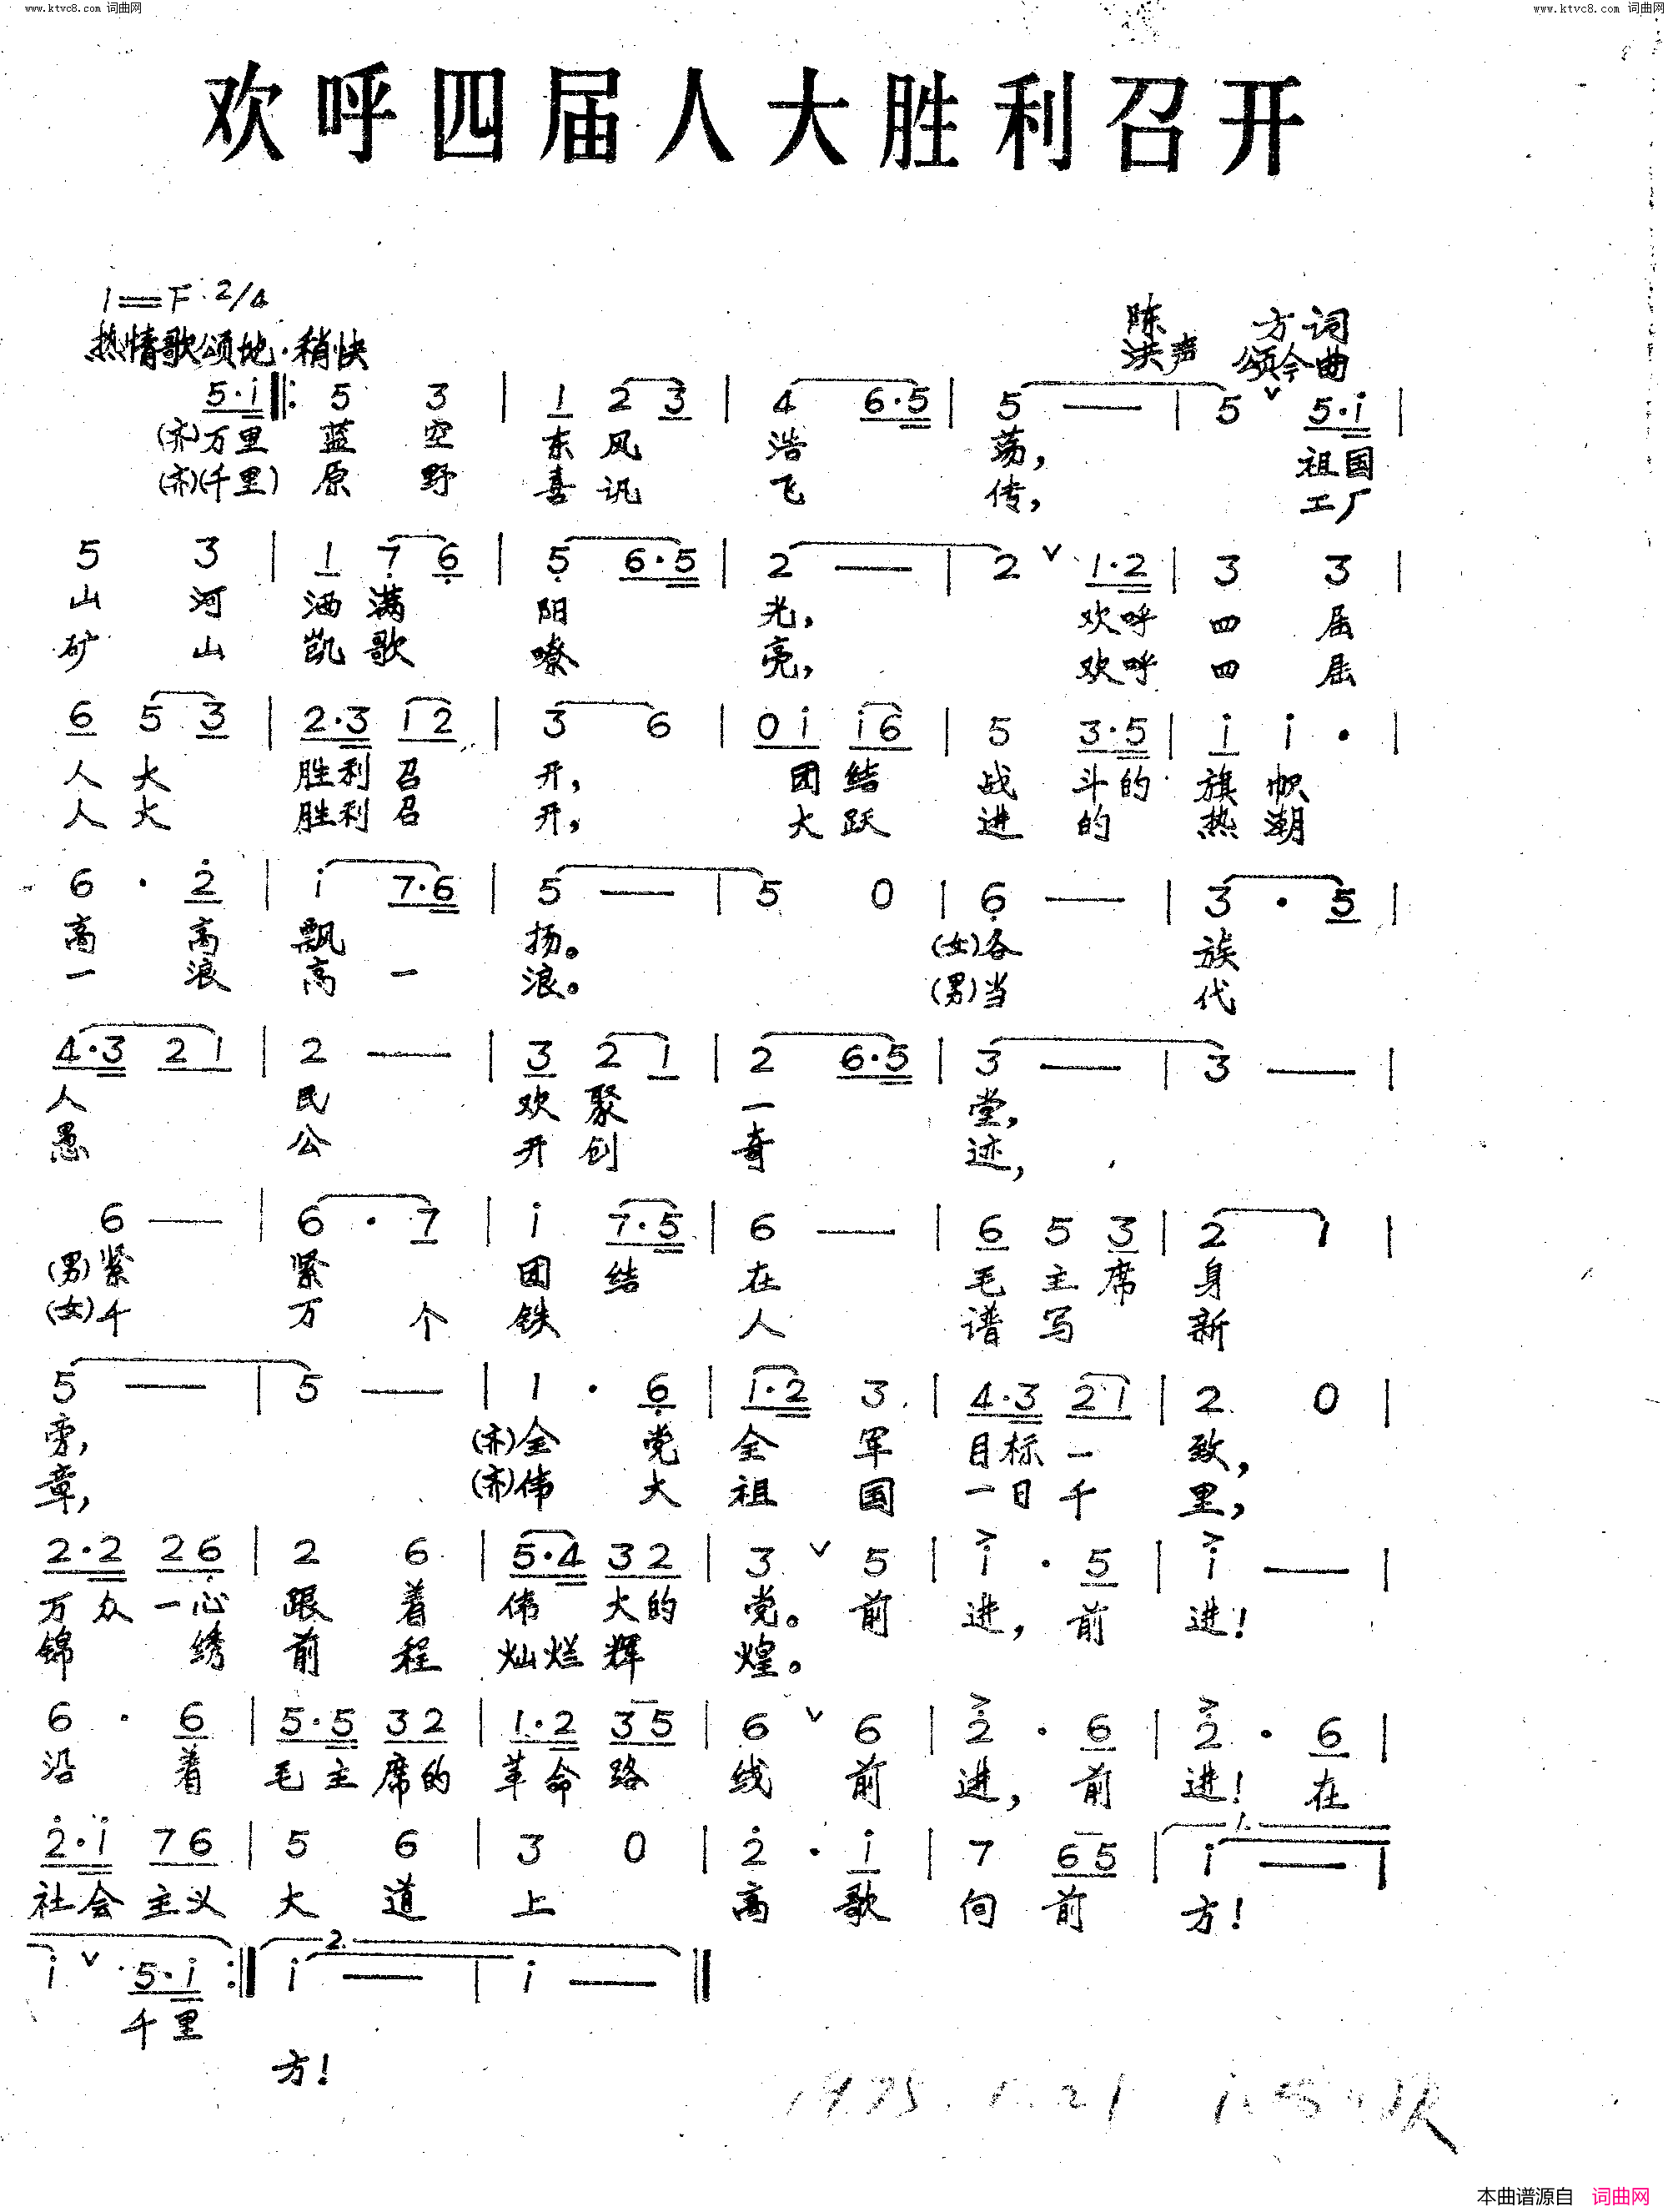 www.ktvc8.com 词曲网
www.ktvc8.com 词曲网
欢呼四届人大胜利召开
1=F 2/4
陈 方词
热情歌颂地·稍快
洪声 颂今曲
5·i ‖: 5 3 | 1 2 3 | 4 6·5 | 5 — | 5 ∨ 5·i |
(齐)万里 蓝 空 东 风 浩 荡, 祖国
(齐)(千里) 原 野 喜 讯 飞 传, 工厂
5 3 | 1 7 6 | 5 6·5 | 2 — | 2 ∨ 1·2 | 3 3 |
山 河 洒 满 阳 光, 欢呼 四 届
矿 山 凯 歌 嘹 亮, 欢呼 四 届
6 5 3 | 2·3 1 2 | 3 6 | 0 i i 6 | 5 3·5 | i i · |
人 大 胜利 召 开, 团 结 战 斗的 旗 帜
人 大 胜利 召 开, 大 跃 进 的 热 潮
6 · 2 | i 7·6 | 5 — | 5 0 | 6 — | 3 · 5 |
高 高 飘 扬。 (女)各 族
一 浪 高 一 浪。 (男)当 代
4·3 2 1 | 2 — | 3 2 1 | 2 6·5 | 3 — | 3 — |
人 民 欢 聚 一 堂,
愚 公 开 创 奇 迹,
6 — | 6 · 7 | i 7·5 | 6 — | 6 5 3 | 2 1 |
(男)紧 紧 团 结 在 毛 主 席 身
(女)千 万 个 铁 人 谱 写 新
5 — | 5 — | 1 · 6 | 1·2 3 | 4·3 2 1 | 2 0 |
旁, (齐)全 党 全 军 目标 一 致,
章, (齐)伟 大 祖 国 一日 千 里,
2·2 2 6 | 2 6 | 5·4 3 2 | 3 ∨ 5 | i · 5 | i — |
万 众 一心 跟 着 伟 大的 党。 前 进, 前 进!
锦 绣 前 程 灿烂 辉 煌。
6 · 6 | 5·5 3 2 | 1·2 3 5 | 6 ∨ 6 | 2 · 6 | 2 · 6 |
沿 着 毛 主 席的 革命 路 线 前 进, 前 进! 在
2·i 7 6 | 5 6 | 3 0 | 2 · i | 7 6 5 | 1. i — |
社会 主义 大 道 上 高 歌 向 前 方!
i ∨ 5·i :‖ 2. i — | i — ‖
千里
方!
1975.1.21
本曲谱源自 词曲网